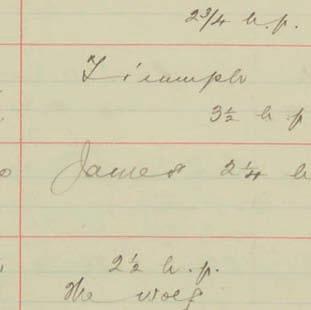 2 3/4 h.p.
Triumph
3 1/2 h p
James 2 1/4 h
2 1/2 h.p.
The Wolf